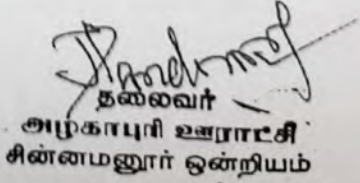 தலைவர்
அழகாபுரி ஊராட்சி
சின்னமனூர் ஒன்றியம்